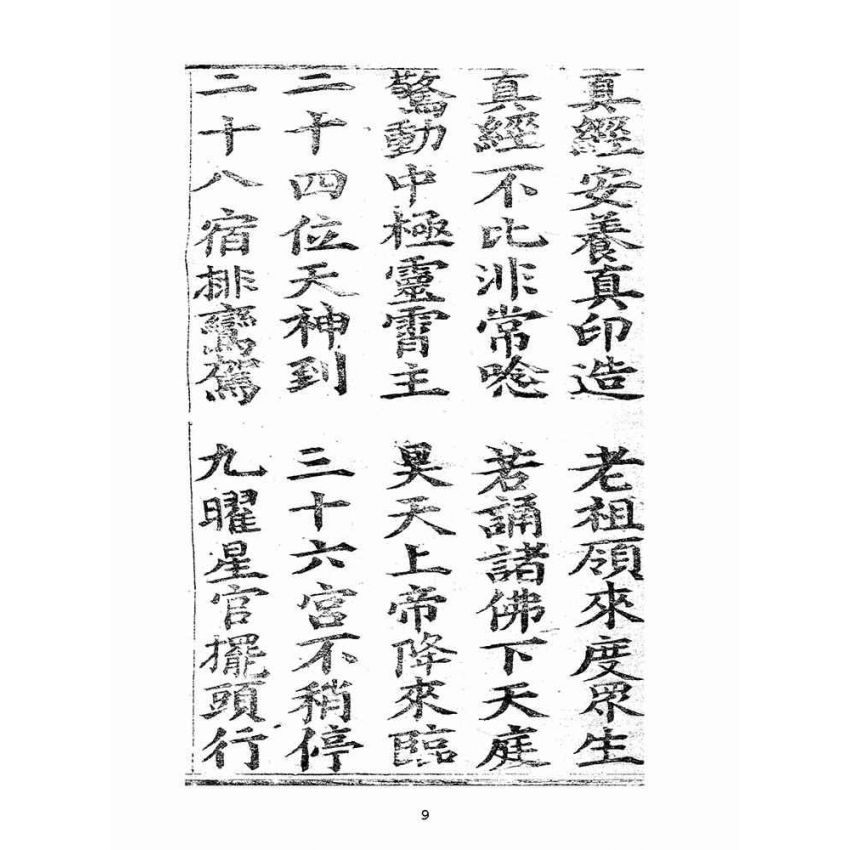 真經安養真印造 老祖領來度眾生
真經不比非常唸 若誦諸佛下天庭
驚動中極靈霄主 昊天上帝降來臨
二十四位天神到 三十六宮不稍停
二十八宿排鸞駕 九曜星官擺頭行
9